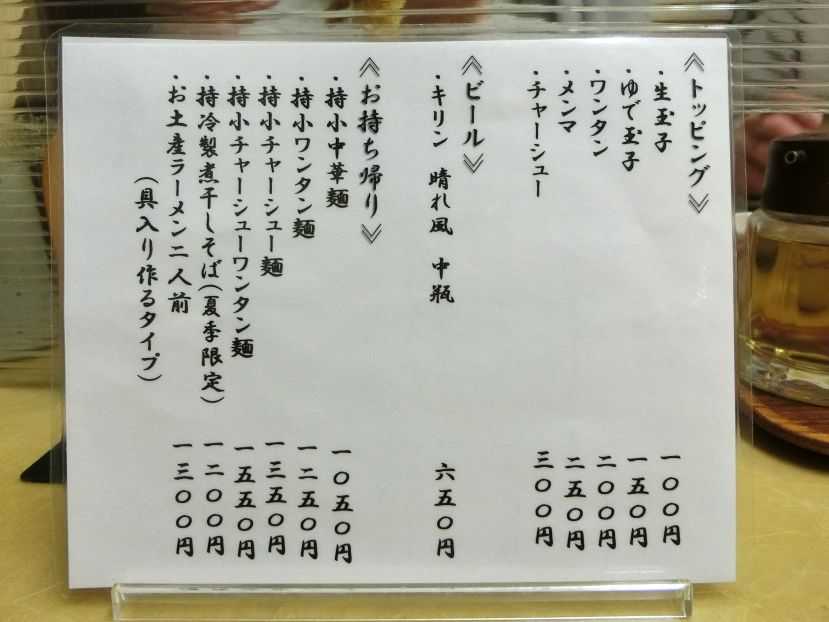 《トッピング》
・生玉子 一〇〇円
・ゆで玉子 一五〇円
・ワンタン 二〇〇円
・メンマ 二五〇円
・チャーシュー 三〇〇円
《ビール》
・キリン 晴れ風 中瓶 六五〇円
《お持ち帰り》
・持小中華麺 一〇五〇円
・持小ワンタン麺 一二五〇円
・持小チャーシュー麺 一三五〇円
・持小チャーシューワンタン麺 一五五〇円
・持冷製煮干しそば(夏季限定) 一二〇〇円
・お土産ラーメン二人前 一三〇〇円
(具入り作るタイプ)